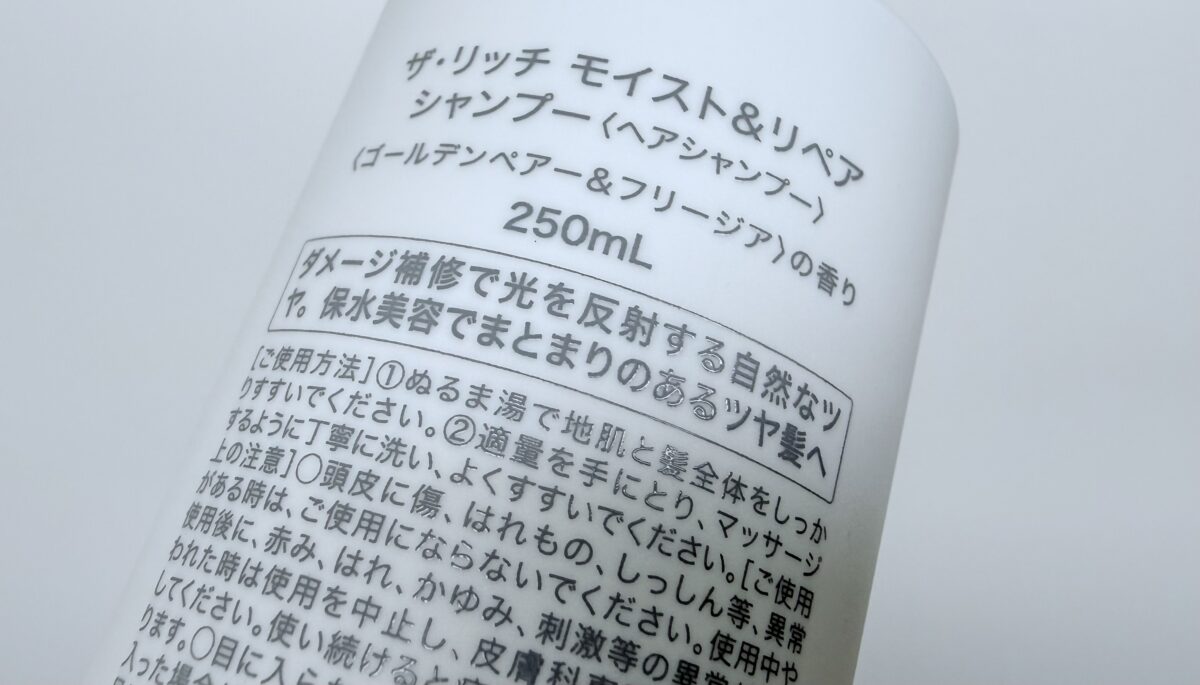 ザ・リッチ モイスト&リペア
シャンプー〈ヘアシャンプー〉
〈ゴールデンペアー&フリージア〉の香り
250mL
ダメージ補修で光を反射する自然なツ
ヤ。保水美容でまとまりのあるツヤ髪へ
[ご使用方法]①ぬるま湯で地肌と髪全体をしっか
りすすいでください。②適量を手にとり、マッサージ
するように丁寧に洗い、よくすすいでください。[ご使用
上の注意]○頭皮に傷、はれもの、しっしん等、異常
がある時は、ご使用にならないでください。使用中や
使用後に、赤み、はれ、かゆみ、刺激等の異常
われた時は使用を中止し、皮膚科専
してください。使い続けると
ります。○目に入ら
入った場合